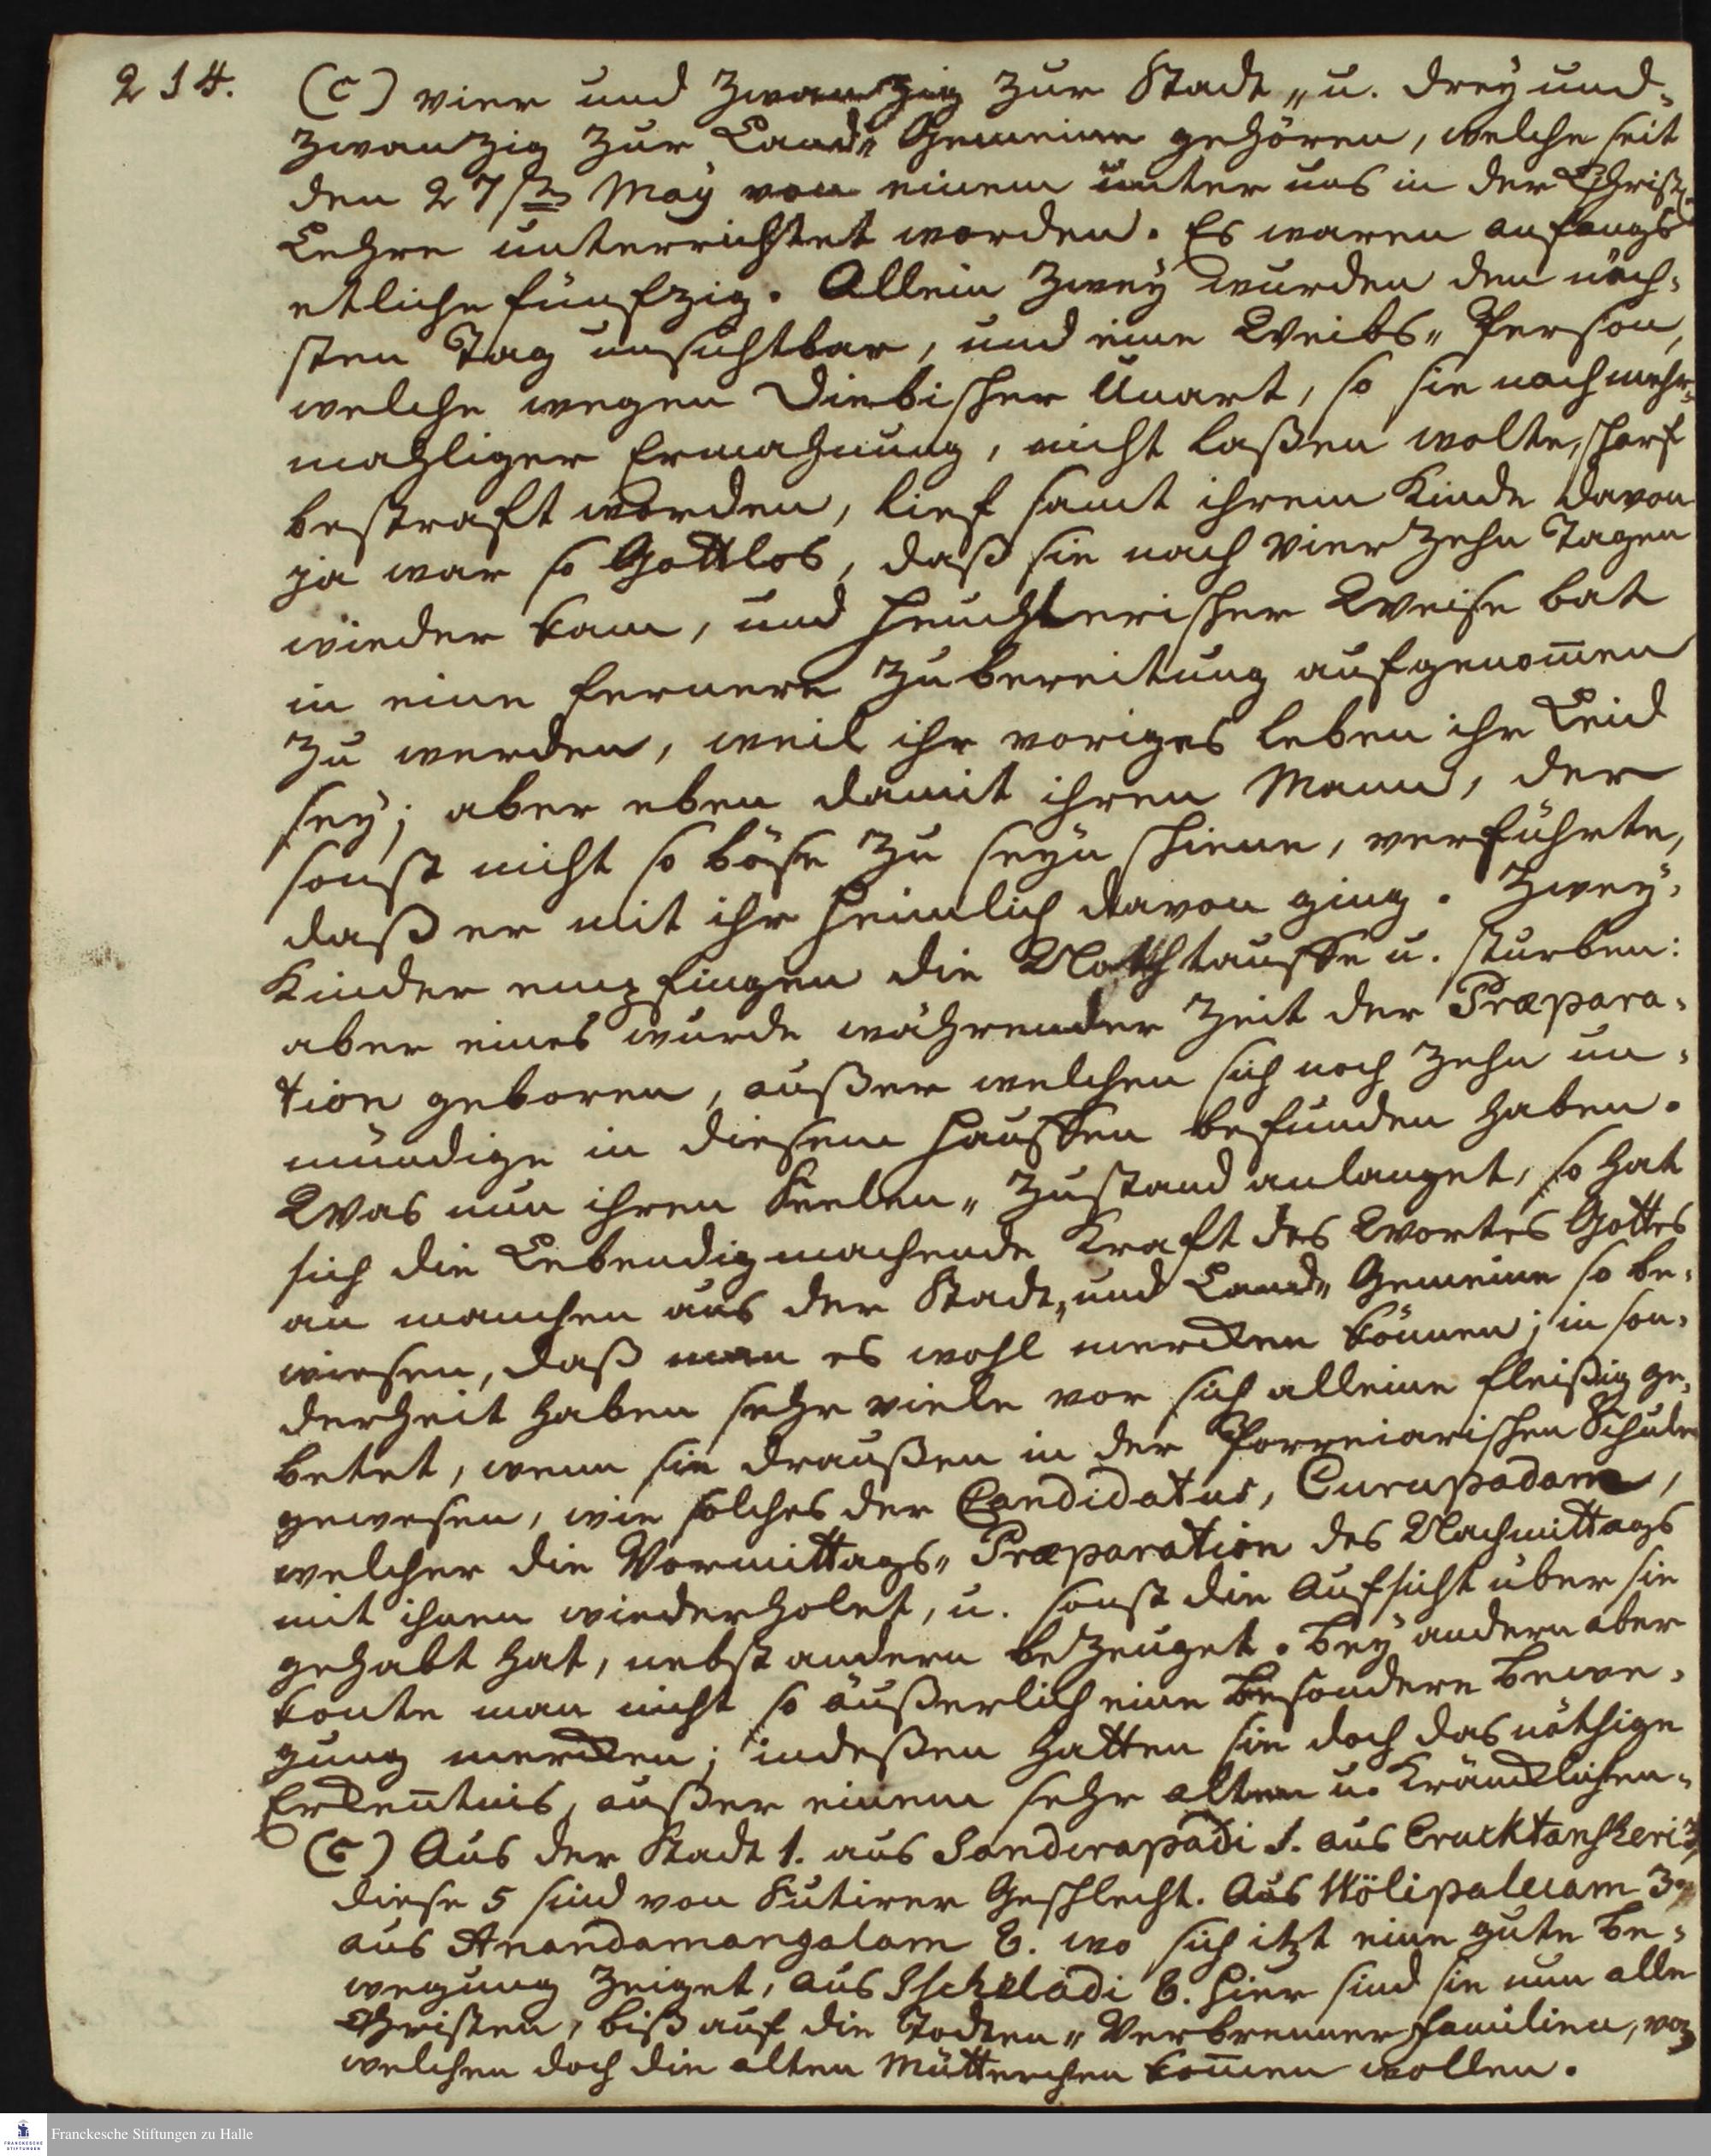 214.
(c) vier und zwanzig zur Stadt „ u. drey und-
zwanzig zur Land „ Gemeine gehören, welche seit
den 27sten May von einem unter uns in der Christl.
Lehre unterrichtet worden. Es waren anfangs
etliche fünfzig. Allein zwey wurden den näch-
sten Tag unsichtbar, und eine Weibs „ Person,
welche wegen diebischer Unart, so sie nach mehr-
mahliger Ermahnung, nicht laßen wolte, scharf
bestraft worden, lief samt ihrem Kinde davon
ja war so Gottlos, daß sie nach vier zehn Tagen
wieder kam, und heuchlerischer Weise bat
in eine fernere Zubereitung aufgenom̄en
zu werden, weil ihr voriges Leben ihr Leid
sey; aber eben damit ihren Mann, der
sonst nicht so böse zu seyn schiene, verführte,
daß er mit ihr heimlich davon ging. Zwey-
Kinder empfingen die Nothtauffe u. sturben:
aber eines wurde währender Zeit der Præpara-
tion geboren, außer welchen sich noch zehn un-
mündige in diesem Hauffen befunden haben.
Was nun ihren Seelen „ Zustand anlanget, so hat
sich die Lebendigmachende Kraft des Wortes Gottes
an manchen aus der Stadt „ und Land „ Gemeine so be-
wiesen, daß man es wohl mercken können; in son-
derheit haben sehr viele vor sich alleine fleißig ge-
betet, wenn sie draußen in der Porreiarischen Schule
gewesen, wie solches der Candidatus, Curupadam,
welcher die Vormittags „ Præparation des Nachmittags
mit ihnen wiederholet, u. sonst die Aufsicht über sie
gehabt hat, nebst andern bezeuget. Bey andern aber
konte man nicht so äußerlich eine besondere Bewe-
gung mercken; indeßen hatten sie doch das nöthige
Erken̄tnis, außer einem sehr alten u. Kräncklichen-
(c) Aus der Stadt 1. aus Sandirapadi 1. aus Erucktanscheri 3,
diese 5 sind von Sutirer Geschlecht. Aus Wölipaleiam 3.
aus Anandamangalam 6. wo sich itzt eine gute Be-
wegung zeiget, aus Schiladi 6. hier sind sie nun alle
Christen, biß auf die Todten „ Verbrenner Familien, von
welchen doch die alten Mütterchen kom̄en wollen.
Franckesche Stiftungen zu Halle